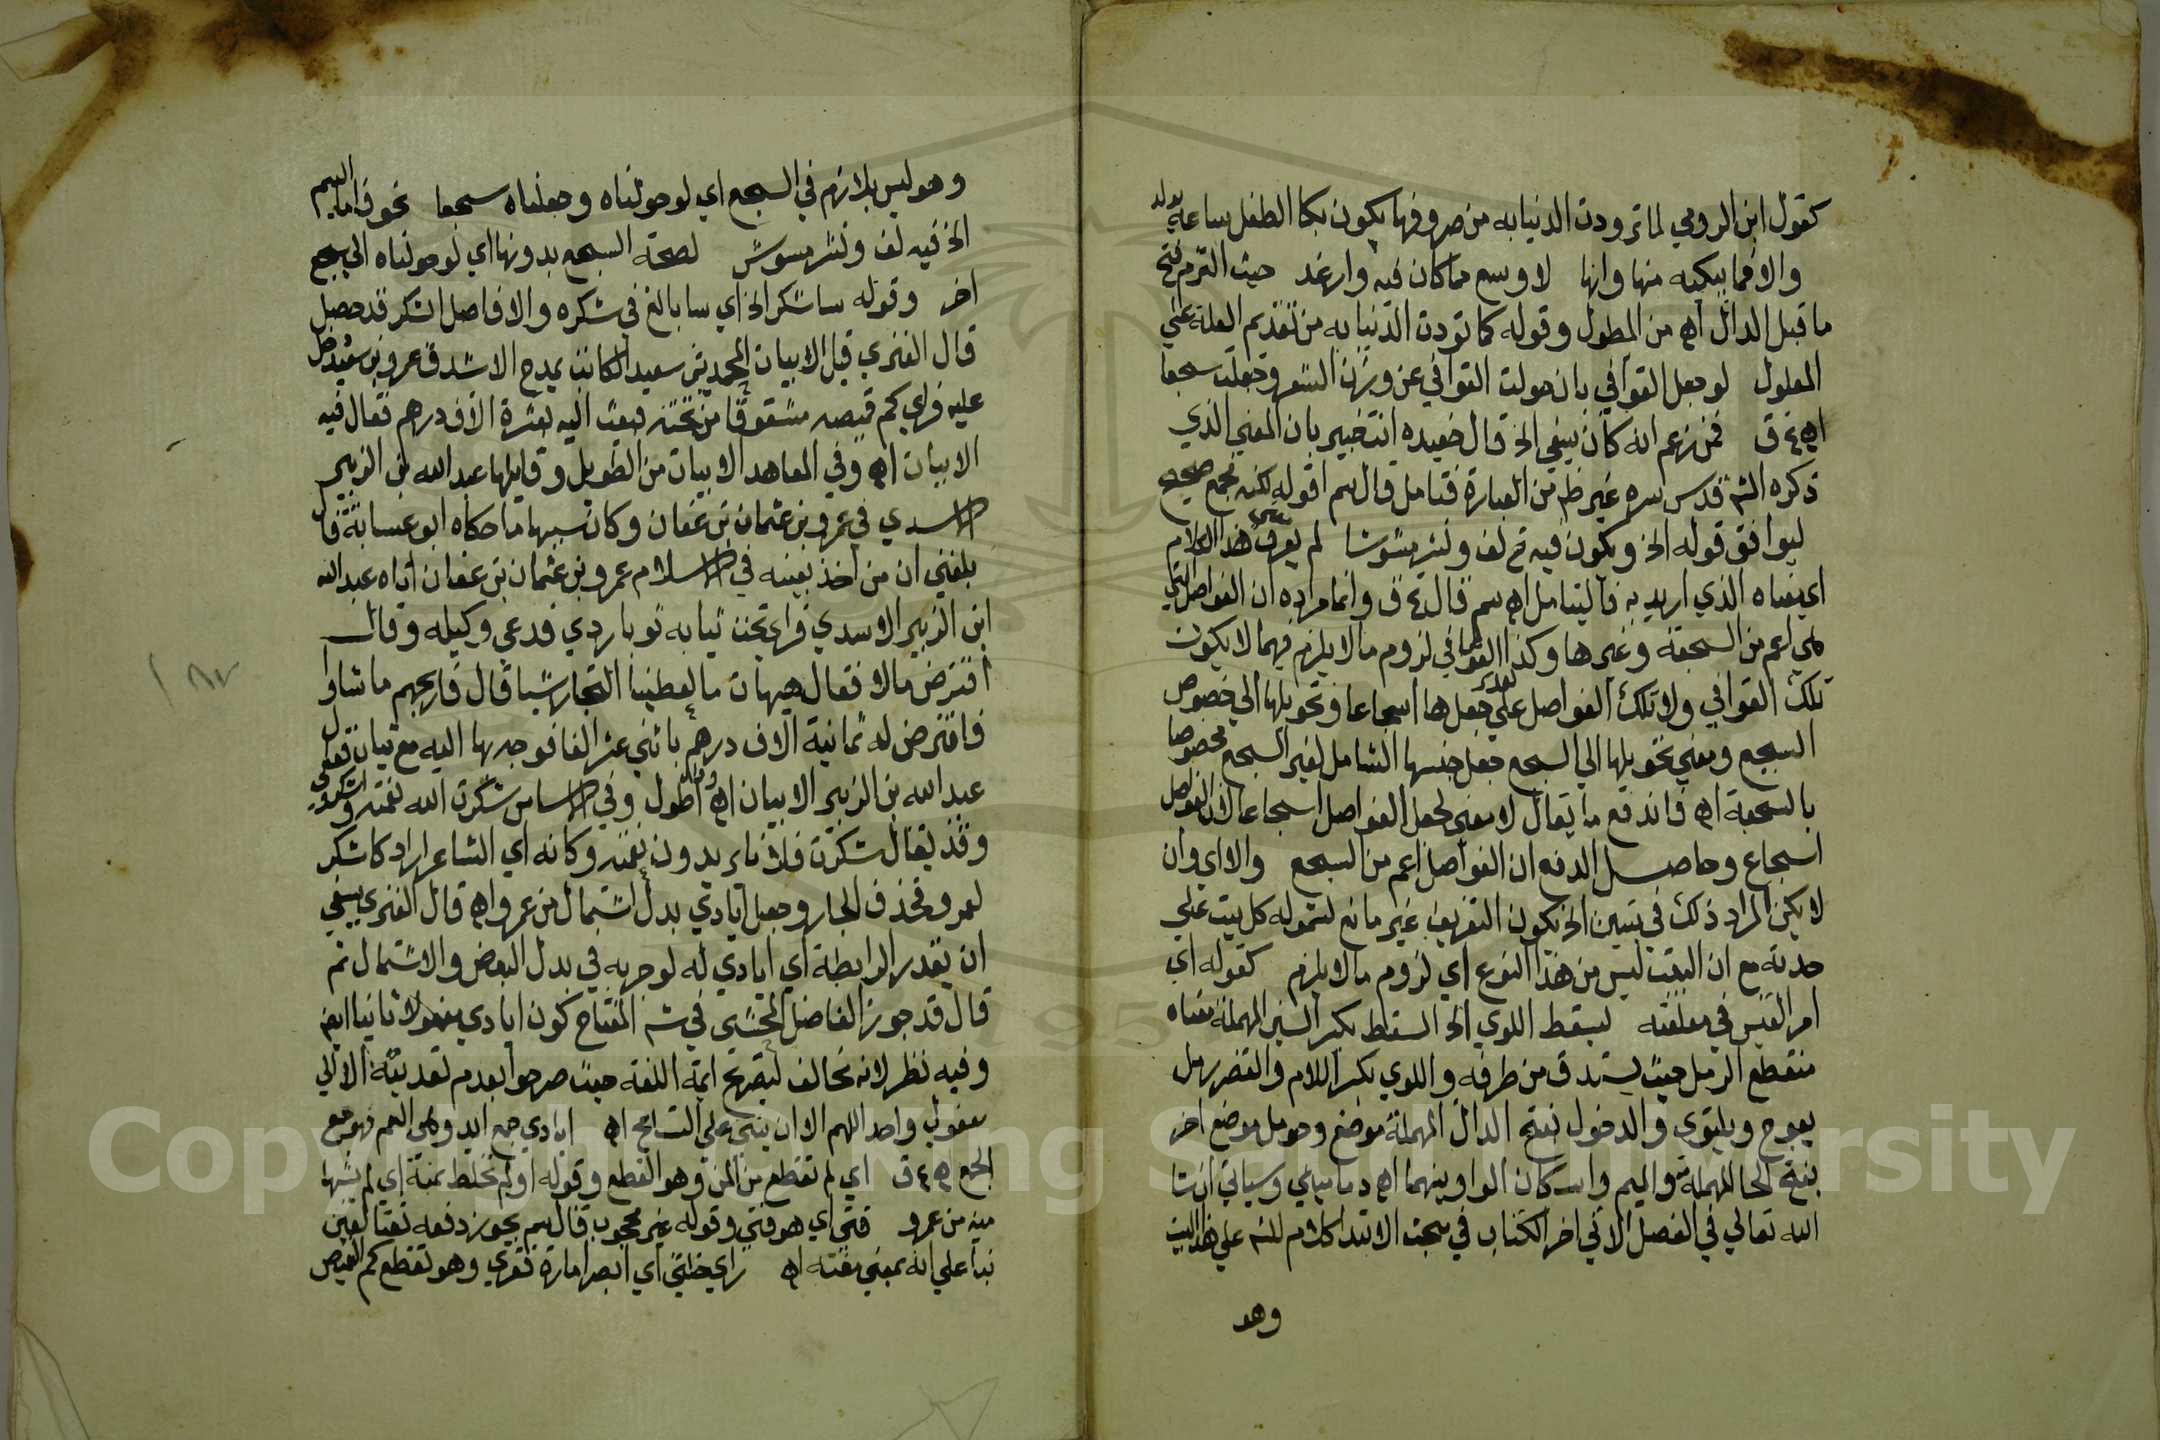 كقول ابن الرومي لما تؤذن الدنيا به من صروفها يكون بكا الطفل ساعة يولد
والا فما يبكيه منها وانها لاوسع مما كان فيه وارغد حيث التزم فتح
ما قبل الدال اه من المطول وقوله كما تودن الدنيا به من تقديم العلة علي
المعلول لو جعل القوافي بان حولت القوافي عن وزن الشعر وجعلت سجعا
اه ع ق فمن زعم انه كان ينبغي الخ قال حفيده انت خبير بان المعني الذي
ذكره الش قدس سره غير ظ من العبارة فتامل قال سم اقوله لكنه صحيح
ليوافق قوله الخ ويكون فيه لف ونشر مشوشا لم يعرف معني هذا الكلام
اي معناه الذي اريد به فاليتامل اه سم قال ع ق وانما مراده ان الفواصل التي
هي اعم من السجعة وغيرها وكذا القوافي في لزوم ما لا يلزم فيهما لا يكون
تلك القوافي ولا تلك الفواصل علي تقدير جعلها اسجاعا وتحويلها الي خصوص
السجع ومعني تحويلها الي السجع جعل جنسها الشامل لغير السجع مخصوصا
بالسجعة اه فاندفع ما يقال لا معني لجعل الفواصل اسجاعا لان الفواصل
اسجاع وحاصل الدفع ان الفواصل اعم من السجع والا اي وان
لا يكن المراد ذلك في بيتين الخ يكون التعريف غير مانع لشموله كل بيت علي
حدته مع ان البيت ليس من هذا النوع اي لزوم ما لا يلزم كقوله اي
امر القيس في معلقته لسقط اللوي الخ السقط بكسر السين المهملة معناه
منقطع الرمل حيث يستدق من طرفه واللوي بكسر اللام والقصر رمل
يعوج ويلتوي والدخول بفتح الدال المهملة موضع وحومل موضع اخر
بفتح الحا المهملة والميم واسكان الواو بينهما اه دماميني وسياتي ان شا
الله تعالي في الفصل الاتي اخر الكتاب في مبحث الابتدا كلام للش علي هذا البيت
وهو
وهو ليس بلازم في السجع اي لو حولناه وجعلناه سجعا نحو فاما اليتيم
الخ فيه لف ونشر مشوش لصحة السجع بدونها اي لو حولناه الي سجع
اخر وقوله ساشكر الخ اي سا بالغ في شكره والا فاصل الشكر قد حصل
قال الفنري قيل الابيات لمحمد بن سعيد الكاتب يمدح الاشدق عمرو بن سعيد دخل
عليه فراي كم قميصه مشقوقا من تحته فبعث اليه بعشرة الاف درهم فقال فيه
الابيات اه وفي المعاهد الابيات من الطويل وقايلها عبد الله بن الزبير
الاسدي في عمرو بن عثمان بن عفان وكان سببها ما حكاه ابو غسانة قال
بلغني ان من اخذ بعينه في الاسلام عمرو بن عثمان بن عفان اتاه عبد الله
ابن الزبير الاسدي فراي تحت ثيابه ثوبا ردي فدعي وكيله وقال
اقترض مالا فقال هيهات ما يعطينا التجار شيا قال فاربحهم ما شاوا
فاقترض له ثمانية الاف درهم باثني عشر الفا فوجه بها اليه مع ثياب فقال
عبد الله بن الزبير الابيات اه اطول وفي الاساس شكرت الله نعمته
وقد يقال شكرت فلانا يريدون نعمته وكانه اي الشاعر اراد كاشكر
لعمرو فحذف الجار وجعل ايادي بدل اشتمال من عمرو اه قال الفنري ينبغي
ان يقدر الرابطة اي ايادي له لوجوبه في بدل البعض والاشتمال ثم
قال قد جوز الفاضل المحشي في ش المفتاح كون ايادي مفعولا ثانيا ايض
وفيه نظر لانه مخالف لتصريح ايمة اللغة حيث صرحوا بعدم تعديته الا الي
مفعول واحد اللهم الا ان يبني علي التسامح اه ايادي جمع ايد وهي النعم فهو جمع
الجمع اه ع ق اي لم تقطع من المن وهو القطع وقوله او لم تخلط بمنة اي لم يشبها
منه من عمرو فتي اي هو فتي وقوله غير محجوب قال سم يجوز رفعه نعتا لفتي
بنا علي انه بمعني نعته اه راي خلتي اي ابصر امارة فقري وهو تقطع كم القميص
١٨٧
Copyright King Saud University
1957